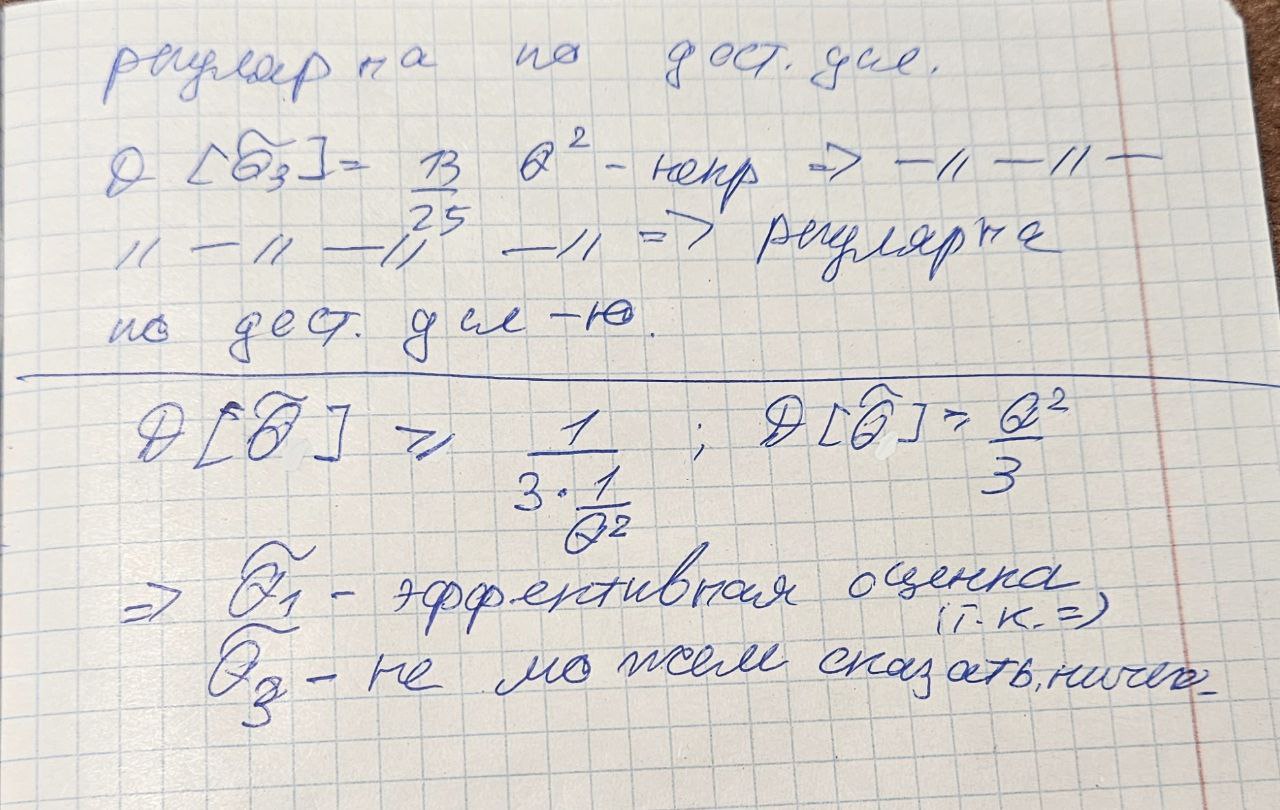 регулярна по дост. усл.
D [θ̃₃] = 13/25 θ² - непр => — 〃 — 〃 —
〃 — 〃 — 〃 — 〃 => регулярна
по дост. усл-ю.
D[θ̃] ≥ 1/(3·1/θ²) ; D[θ̃] ≥ θ²/3
=> θ̃₁ - эффективная оценка
(т.к. =)
θ̃₃ - не можем сказать ничего